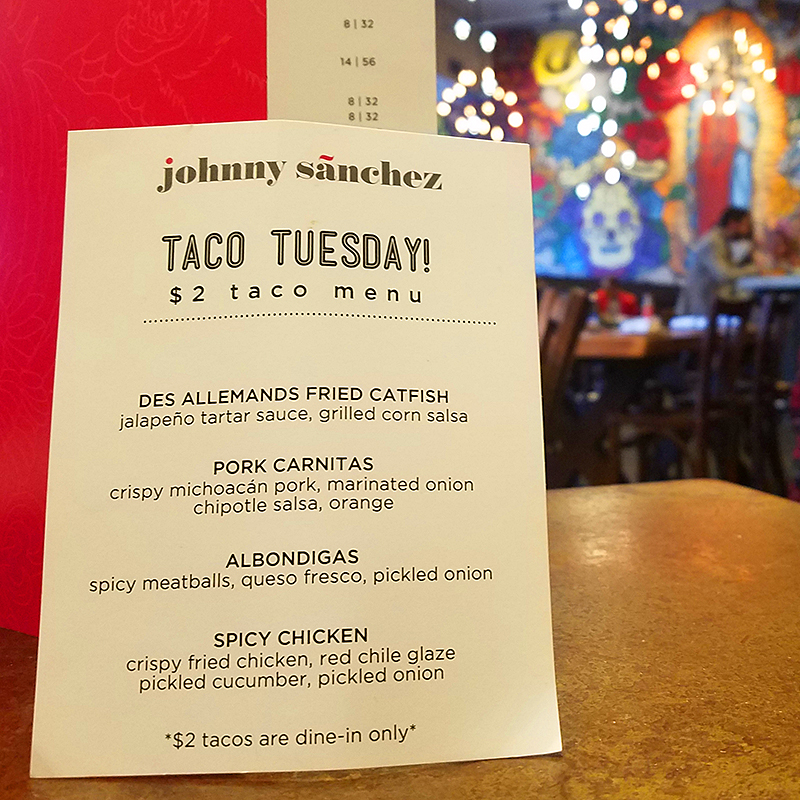 8 | 32
14 | 56
8 | 32
8 | 32
johnny sãnchez
TACO TUESDAY!
$2 taco menu
DES ALLEMANDS FRIED CATFISH
jalapeño tartar sauce, grilled corn salsa
PORK CARNITAS
crispy michoacán pork, marinated onion
chipotle salsa, orange
ALBONDIGAS
spicy meatballs, queso fresco, pickled onion
SPICY CHICKEN
crispy fried chicken, red chile glaze
pickled cucumber, pickled onion
*$2 tacos are dine-in only*